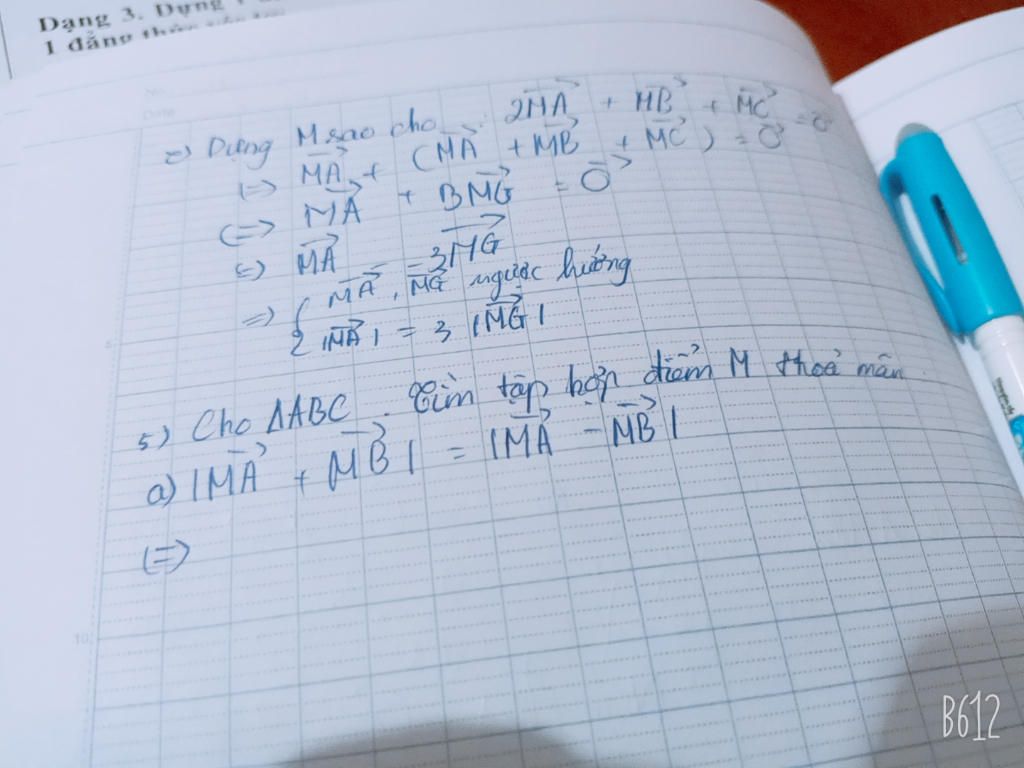 Dạng 3. Dựng
1 đẳng thức
No.
Date
c) Dựng M sao cho 2MA + MB + MC = 0
(=) MA + (MA + MB + MC) = 0
(=) MA + 3MG = 0
(=) MA = -3MG
=) { MA, MG ngược hướng
|MA| = 3 |MG|
5
5) Cho ΔABC. Tìm tập hợp điểm M thoả mãn
a) |MA + MB| = |MA - MB|
(=)
10
B612